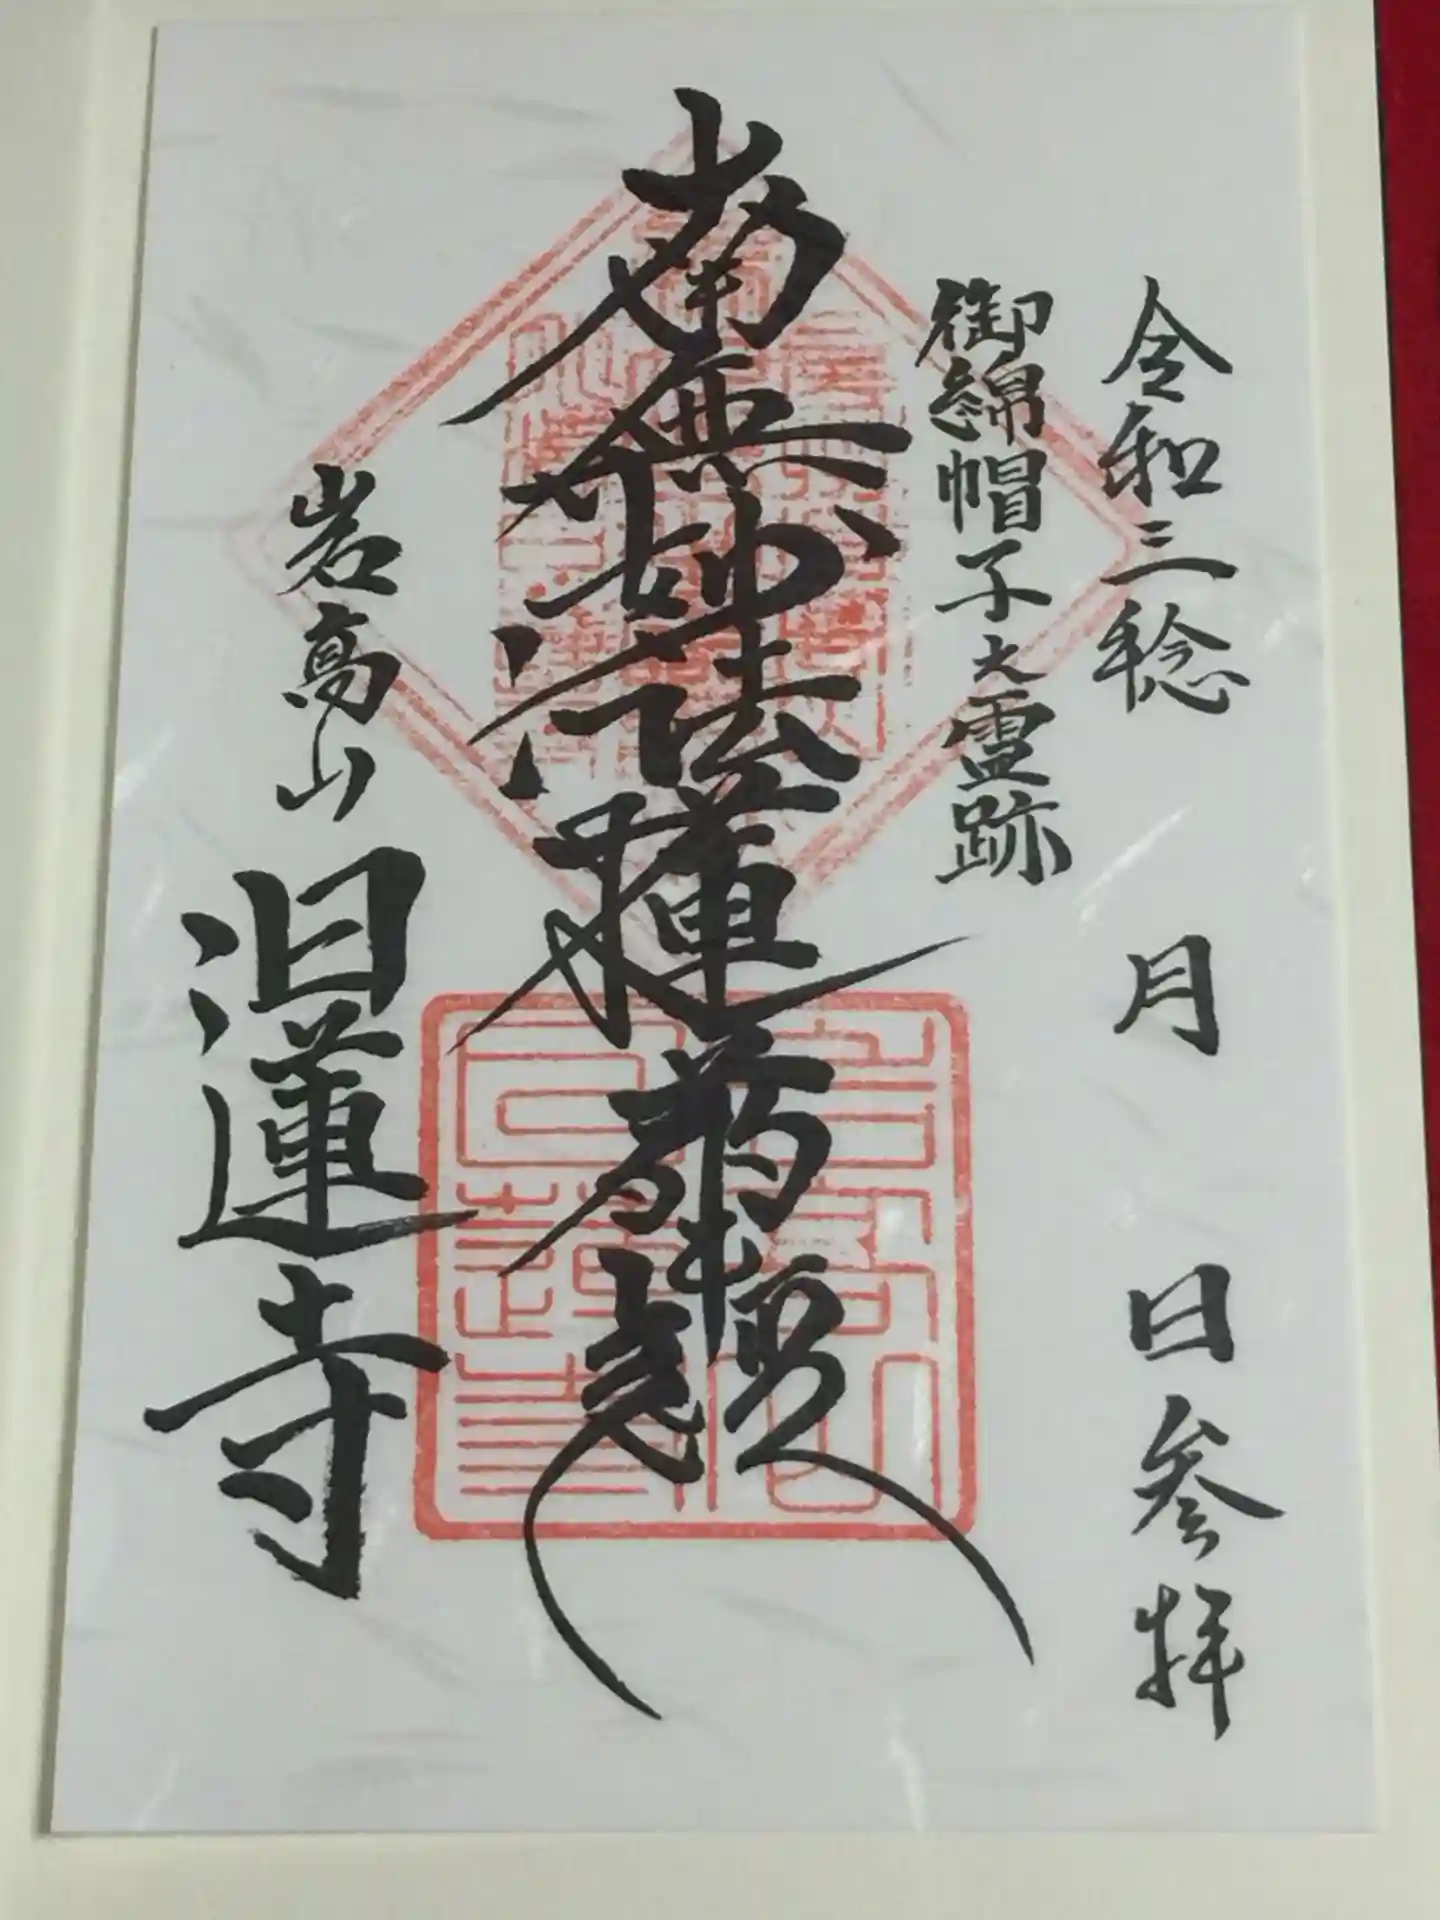 令和三稔 月 日 参拝
御綿帽子大霊跡
南無妙法蓮華経
岩高山
日蓮寺